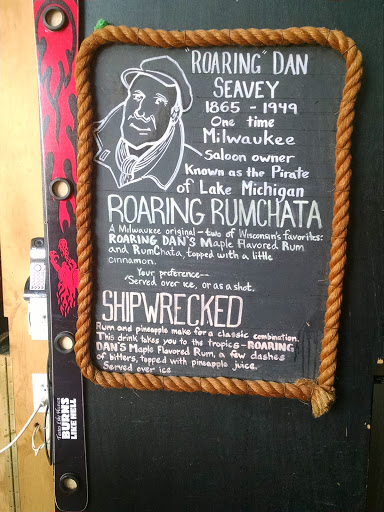 "ROARING" DAN
SEAVEY
1865 - 1949
One time
Milwaukee
Saloon owner
Known as the Pirate
of Lake Michigan
ROARING RUMCHATA
A Milwaukee original - two of Wisconsin's favorites:
ROARING DAN'S Maple Flavored Rum
and RumChata, topped with a little
cinnamon.
Your preference--
Served over ice, or as a shot.
SHIPWRECKED
Rum and pineapple make for a classic combination.
This drink takes you to the tropics - ROARING
DAN'S Maple Flavored Rum, a few dashes
of bitters, topped with pineapple juice.
Served over ice
BURNS
LIKE HELL